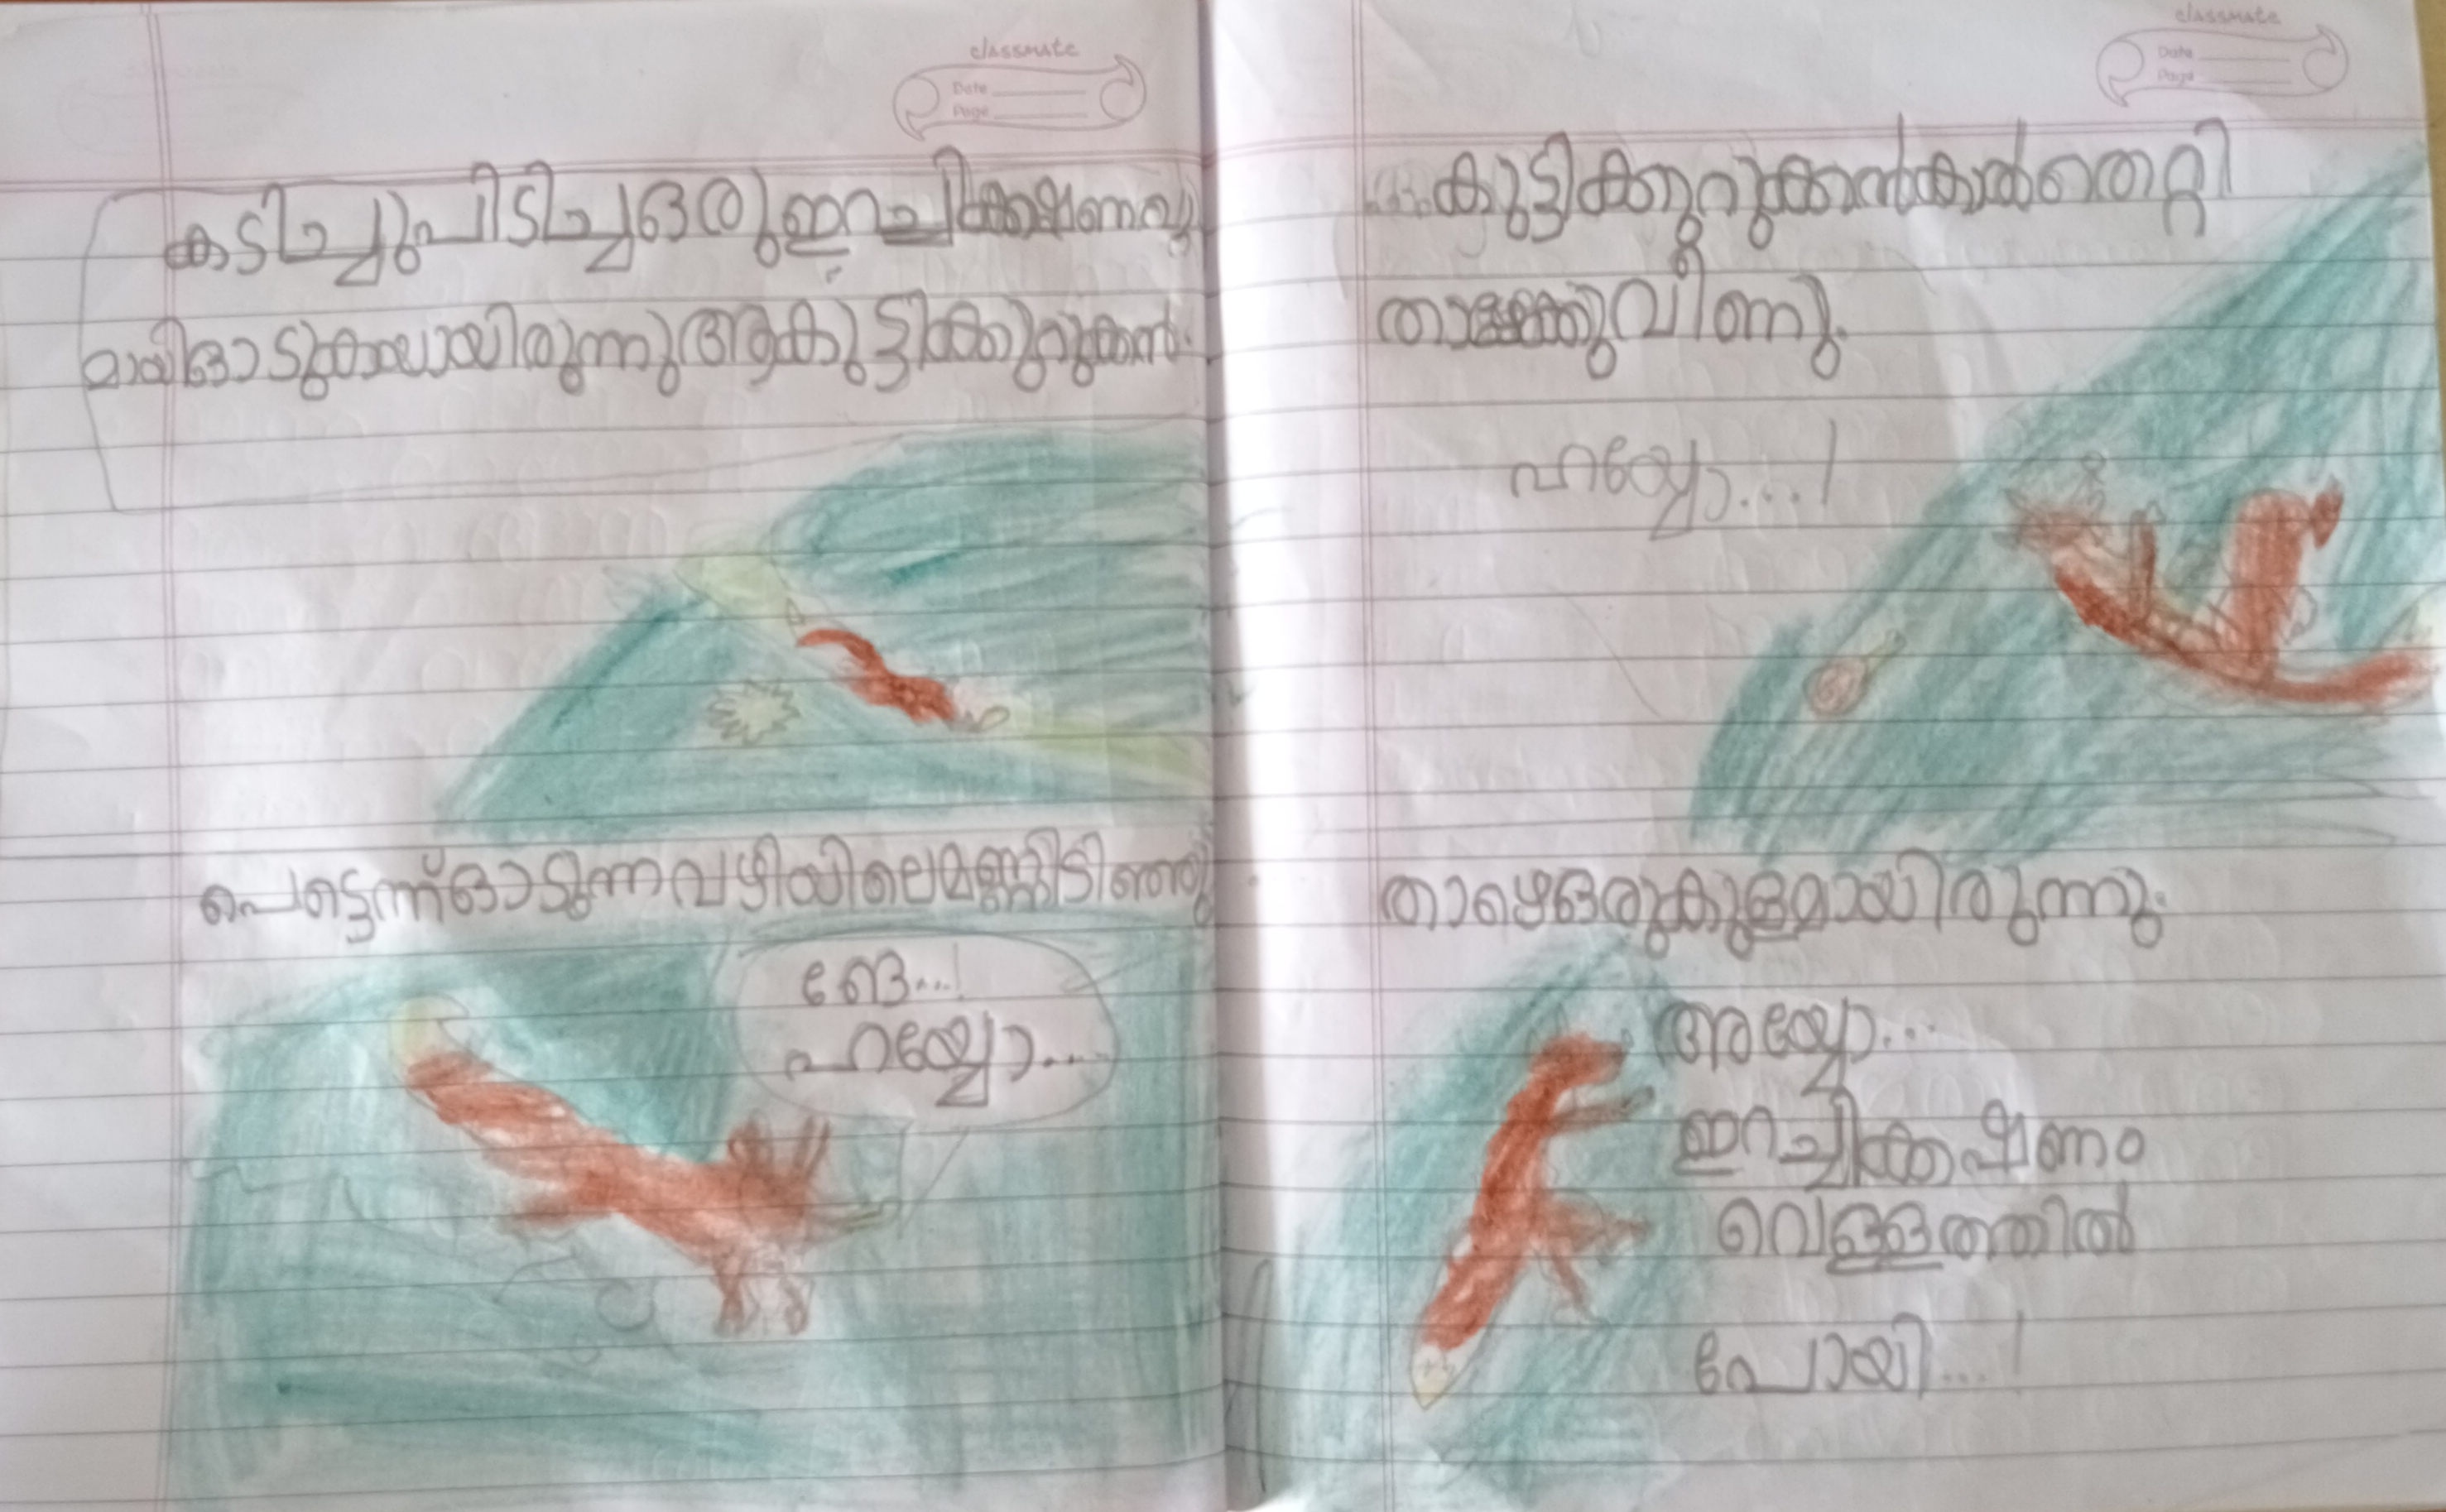 classmate
Date
Page
കടിച്ചുപിടിച്ച ഒരു ഇറച്ചികഷണവു
മായി ഓടുകയായിരുന്നു ആ കുട്ടിക്കുറുക്കൻ.
പെട്ടെന്ന് ഓടുന്ന വഴിയിലെ മണ്ണിടിഞ്ഞു
ങേ...!
ഹയ്യോ....
classmate
Date
Page
കുട്ടിക്കുറുക്കൻ കാൽതെറ്റി
താഴേക്കു വീണു.
ഹയ്യോ...!
താഴെ ഒരു കുളമായിരുന്നു.
അയ്യോ...
ഇറച്ചിക്കഷണം
വെള്ളത്തിൽ
പോയി...!